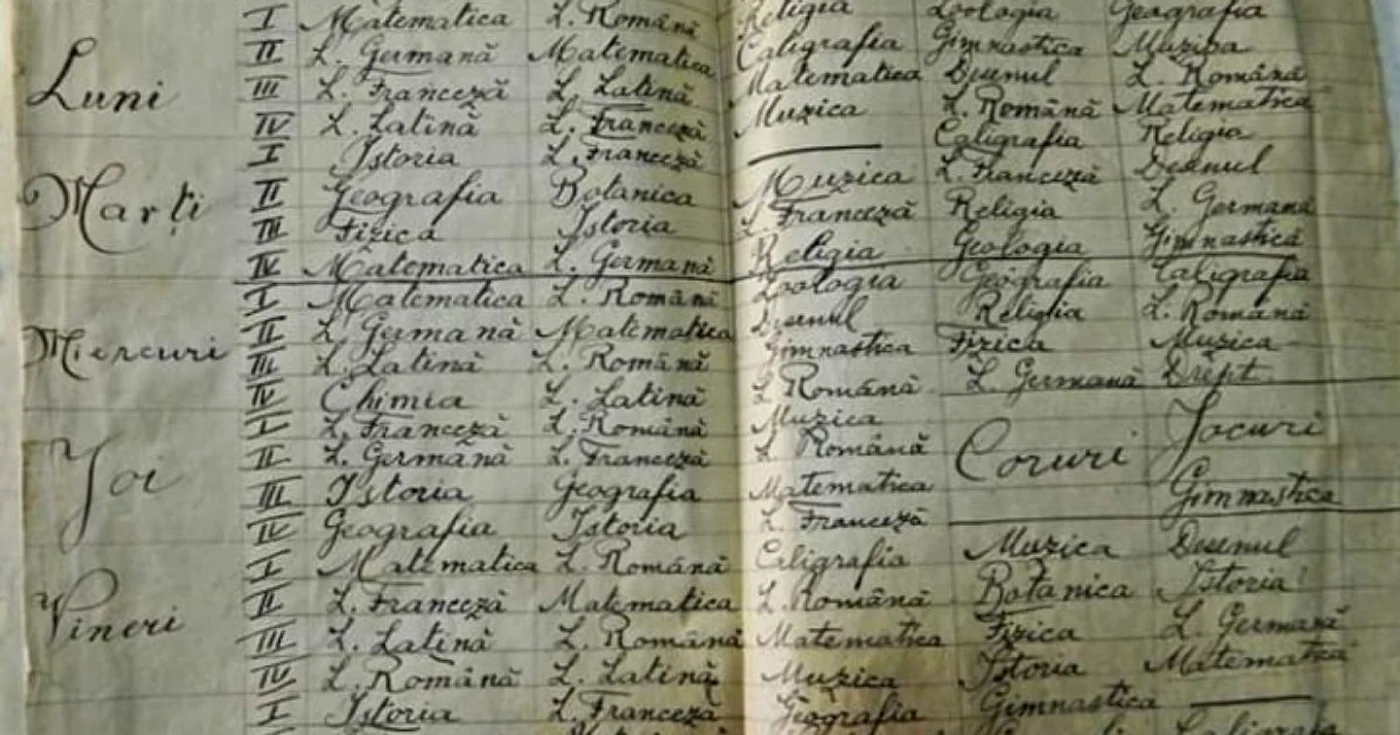 I Matematica L. Română Religia Zoologia Geografia
Luni II L. Germană Matematica Caligrafia Gimnastica Muzica
III L. Franceză L. Latină Matematica Desenul L. Română
IV L. Latină L. Franceză Muzica L. Română Matematica
I Istoria L. Franceză — Caligrafia Religia
Marți II Geografia Botanica Muzica L. Franceză Desenul
III Fizica Istoria L. Franceză Religia L. Germană
IV Matematica L. Germană Religia Geologia Gimnastica
I Matematica L. Română Zoologia Geografia Caligrafia
Miercuri II L. Germană Matematica Desenul Religia L. Română
III L. Latină L. Română Gimnastica Fizica Muzica
IV Chimia L. Latină L Română L. Germană Drept
I L. Franceză L. Română Muzica
Joi II L. Germană L. Franceză L Română Coruri Jocuri
III Istoria Geografia Matematica Gimnastica
IV Geografia Istoria L Franceză
I Matematica L. Română Caligrafia Muzica Desenul
Vineri II L. Franceză Matematica L. Română Botanica Istoria
III L. Latină L. Română Matematica Fizica L. Germană
IV L. Română L. Latină Muzica Istoria Matematică
I Istoria L. Franceză Geografia Gimnastica —
Caligrafia